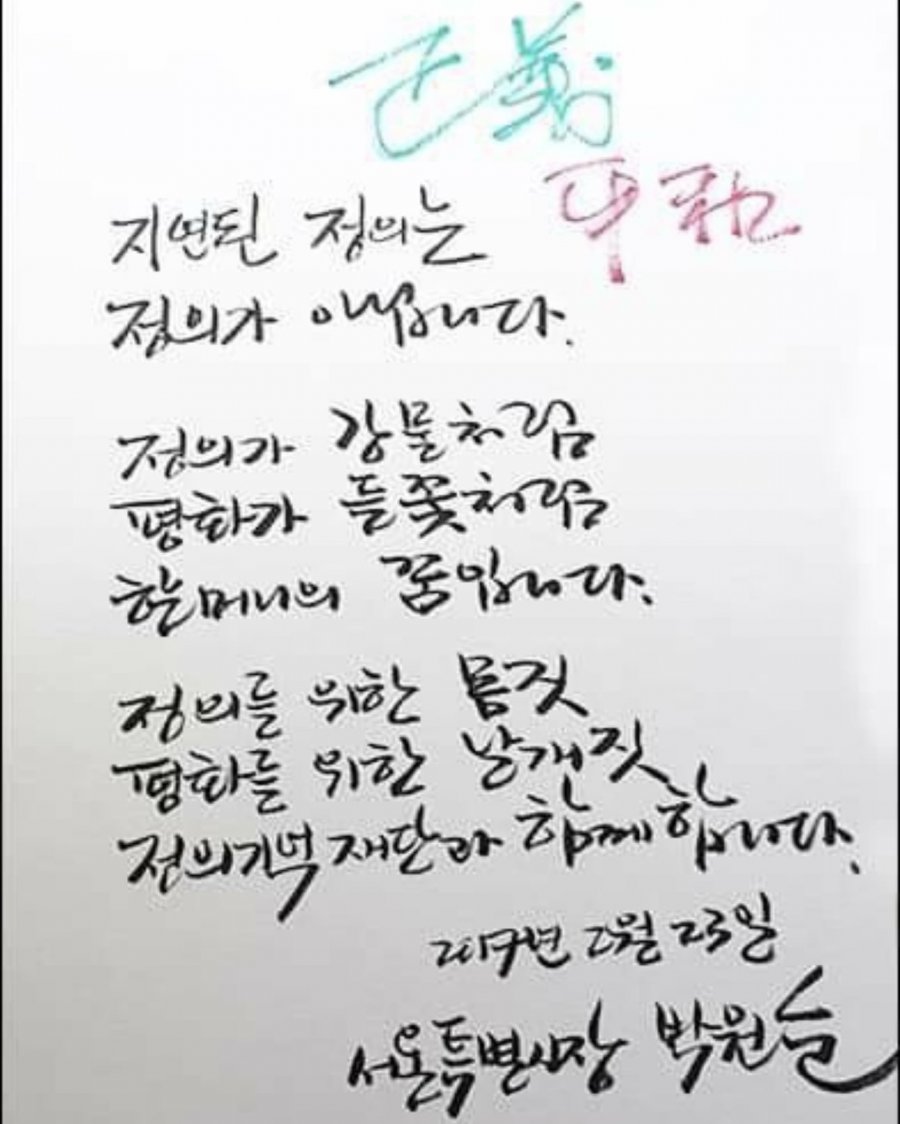 正義
平和
지연된 정의는
정의가 아닙니다.
정의가 강물처럼
평화가 들꽃처럼
할머니의 꿈입니다.
정의를 위한 몸짓
평화를 위한 날개짓
정의기억재단과 함께합니다.
2017년 2월 23일
서울특별시장 박원순